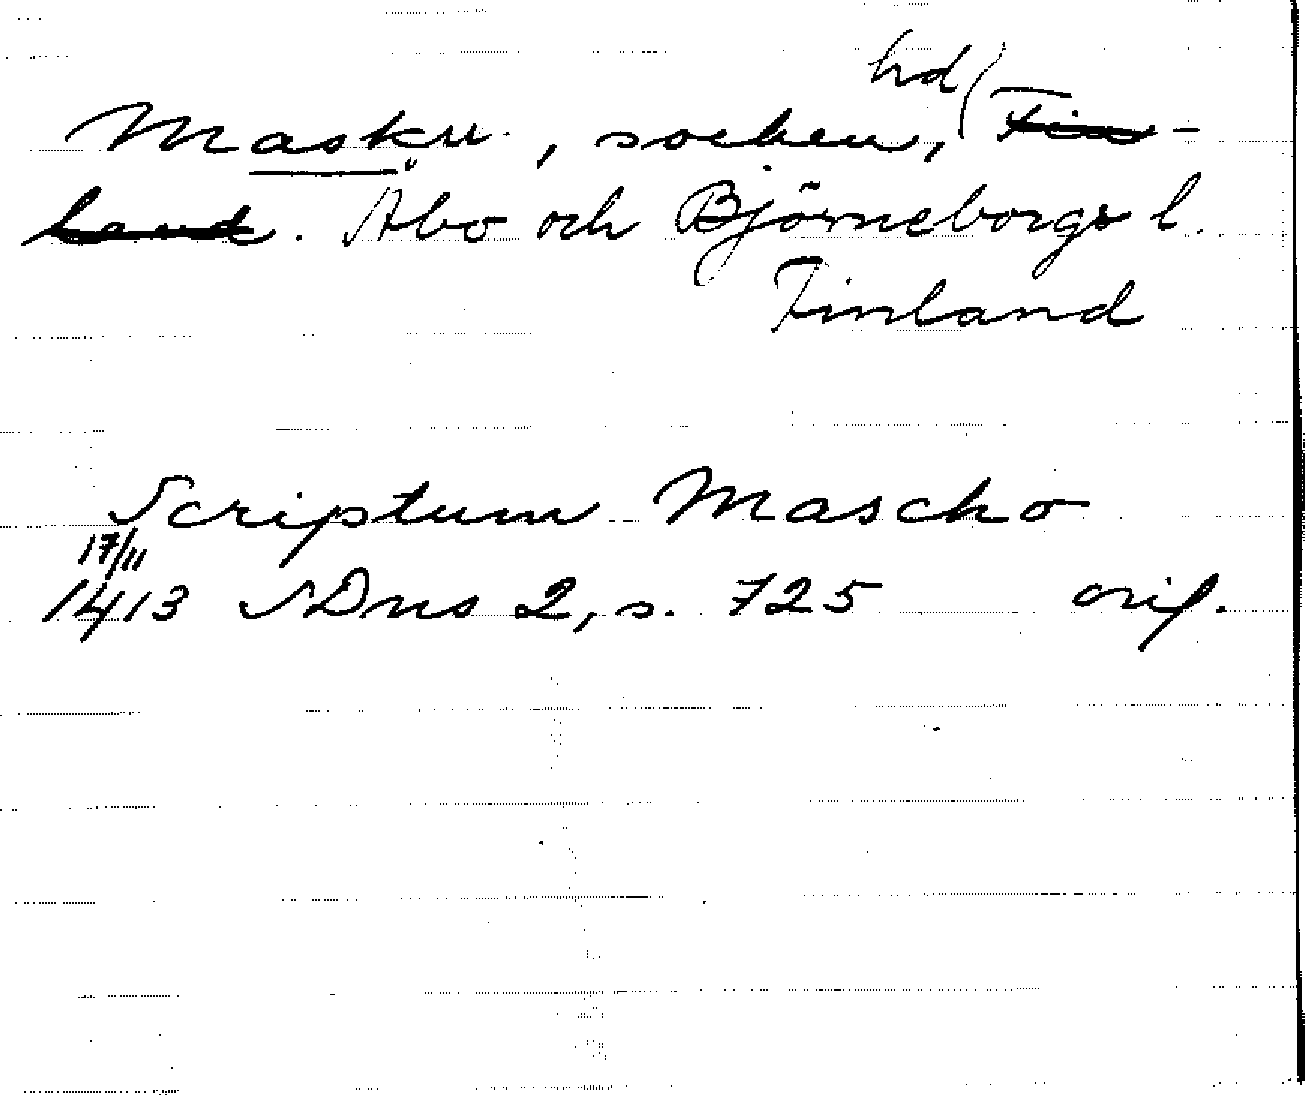 hd
Masku, socken, Fin-
land. Åbo och Björneborgs l.
Finland
Scriptum Mascho
17/11
1413 SDns 2, s. 725 orig.